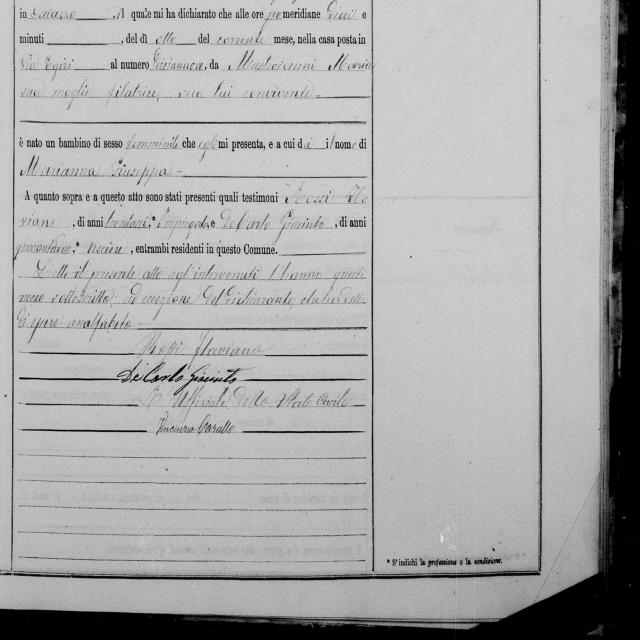 in Caiazzo, A quale mi ha dichiarato che alle ore po meridiane Dieci e
minuti , del dì otto del corrente mese, nella casa posta in
Via Egizi al numero , da Mastroianni Maria
sua moglie filatrice, seco lui convivente
è nato un bambino di sesso femminile che egli mi presenta, e a cui dà il nome di
Marianna Giuseppa
A quanto sopra e a questo atto sono stati presenti quali testimoni Rossi Fla
viano, di anni trentasei,* Impiegato, e De Carlo Giacinto, di anni
quarantuno,* , entrambi residenti in questo Comune.
Letto il presente atto agl'intervenuti l'hanno questi
meco sottoscritto, ad eccezione del dichiarante che ha detto
di essere analfabeta
Rossi Flaviano
Di Carlo Giacinto
L'Uffiziale dello Stato Civile
* S'indichi la professione o la condizione.